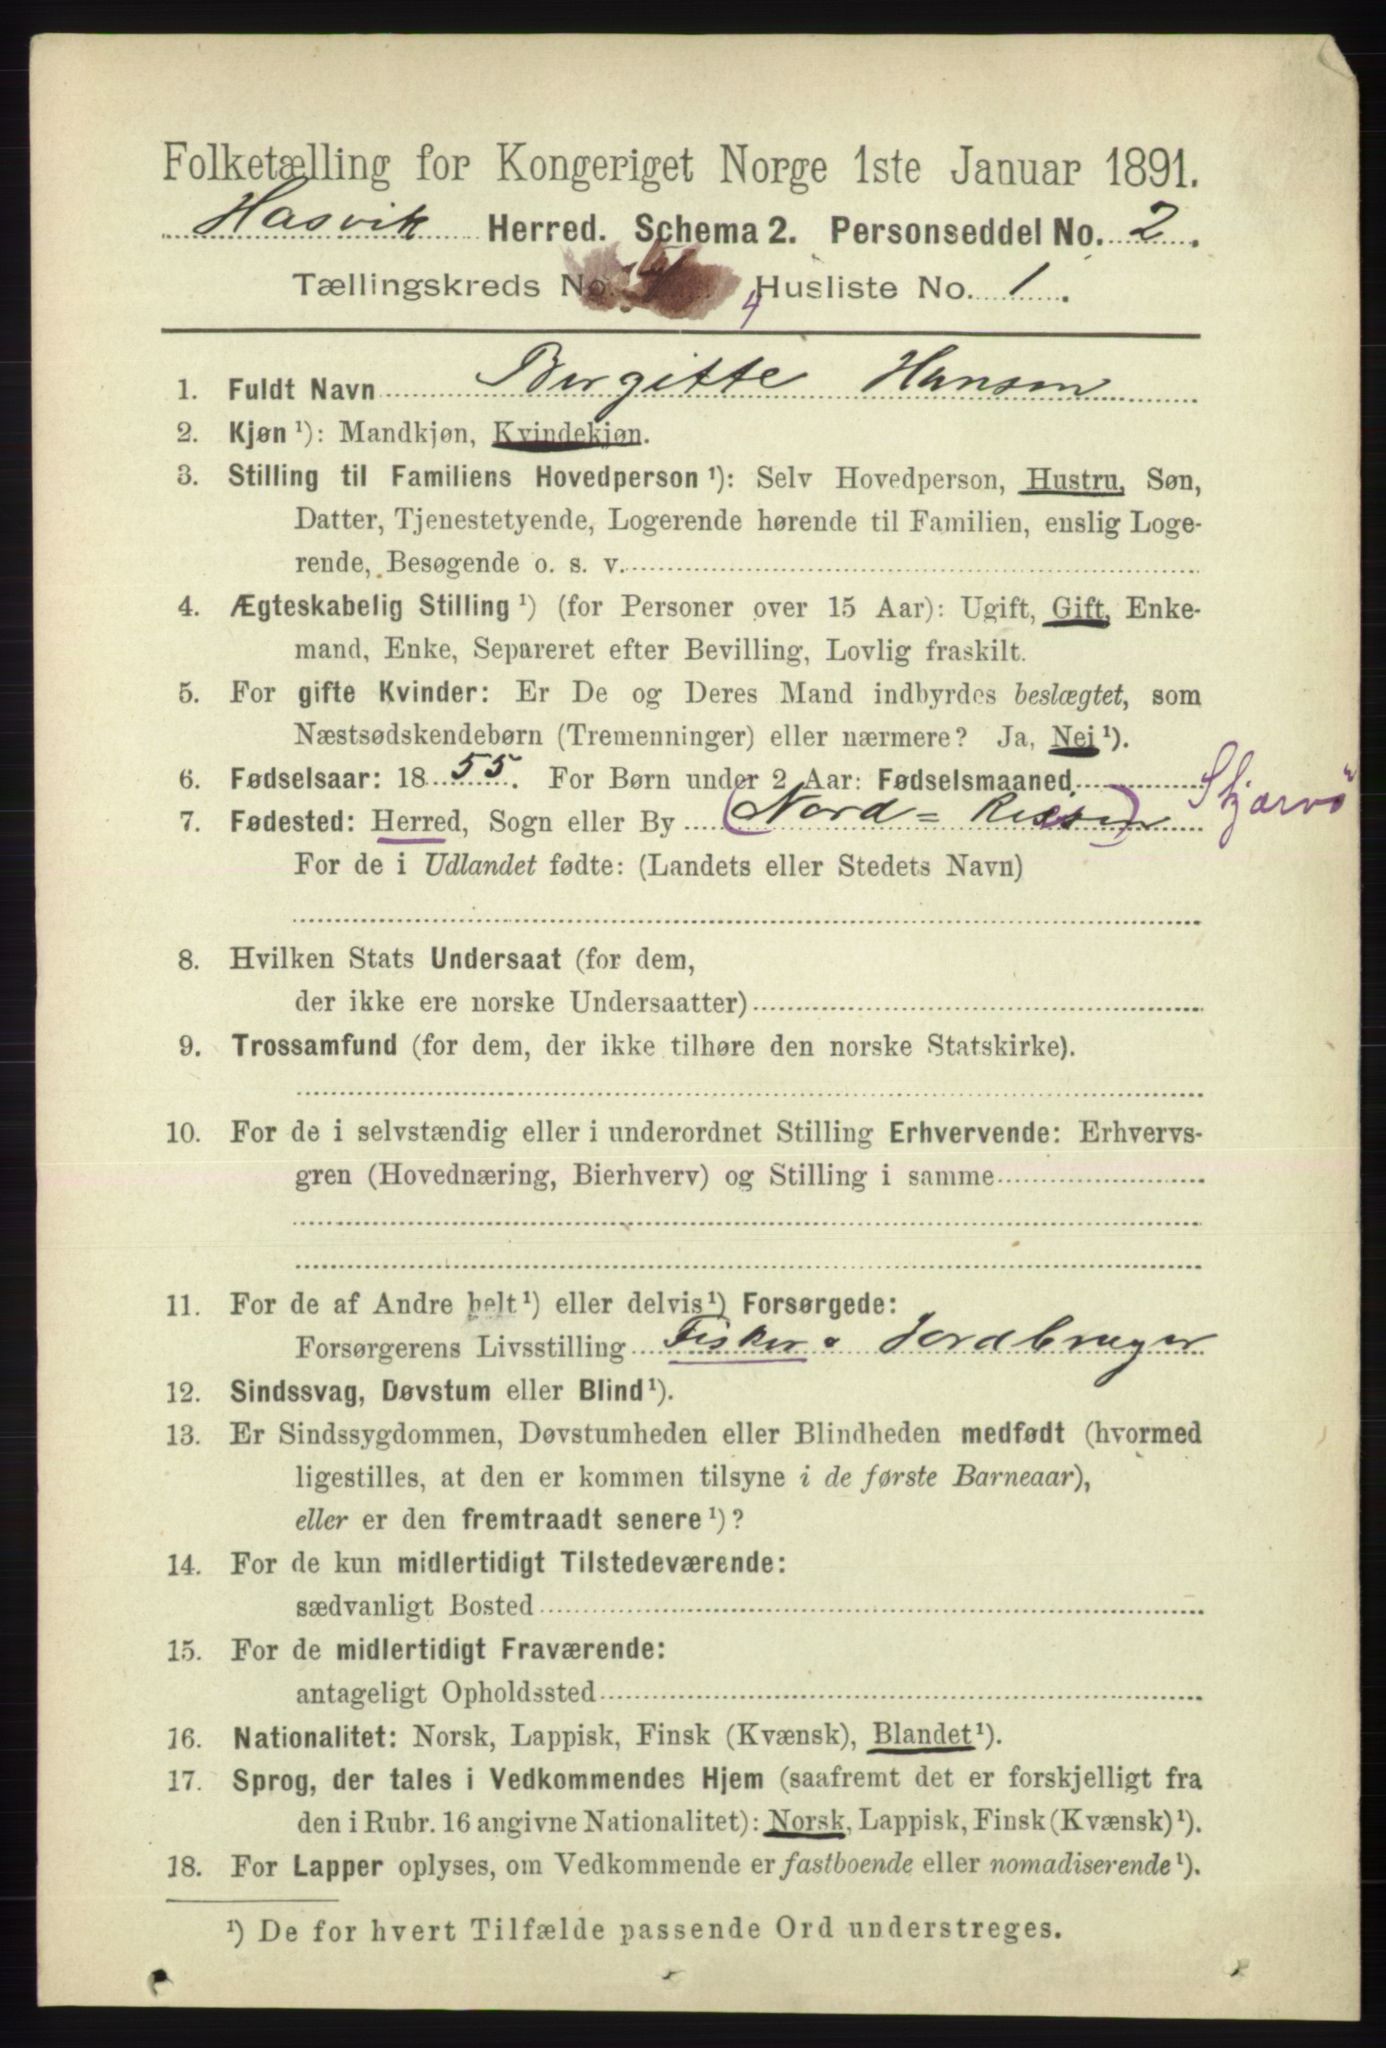 Folketælling for Kongeriget Norge 1ste Januar 1891.
Hasvik Herred. Schema 2. Personseddel No. 2.
Tællingskreds No. 4 Husliste No. 1.
4
1. Fuldt Navn Birgitte Hansen
2. Kjøn ¹): Mandkjøn, Kvindekjøn.
3. Stilling til Familiens Hovedperson ¹): Selv Hovedperson, Hustru, Søn,
Datter, Tjenestetyende, Logerende hørende til Familien, enslig Loge-
rende, Besøgende o. s. v.
4. Ægteskabelig Stilling ¹) (for Personer over 15 Aar): Ugift, Gift, Enke-
mand, Enke, Separeret efter Bevilling, Lovlig fraskilt.
5. For gifte Kvinder: Er De og Deres Mand indbyrdes beslægtet, som
Næstsødskendebørn (Tremenninger) eller nærmere? Ja, Nei ¹).
6. Fødselsaar: 1855. For Børn under 2 Aar: Fødselsmaaned
7. Fødested: Herred, Sogn eller By (Nord = Reisen) Skjærvö
For de i Udlandet fødte: (Landets eller Stedets Navn)
8. Hvilken Stats Undersaat (for dem,
der ikke ere norske Undersaatter)
9. Trossamfund (for dem, der ikke tilhøre den norske Statskirke).
10. For de i selvstændig eller i underordnet Stilling Erhvervende: Erhvervs-
gren (Hovednæring, Bierhverv) og Stilling i samme
11. For de af Andre helt ¹) eller delvis ¹) Forsørgede:
Forsørgerens Livsstilling Fisker o Jordbruger
12. Sindssvag, Døvstum eller Blind ¹).
13. Er Sindssygdommen, Døvstumheden eller Blindheden medfødt (hvormed
ligestilles, at den er kommen tilsyne i de første Barneaar),
eller er den fremtraadt senere ¹)?
14. For de kun midlertidigt Tilstedeværende:
sædvanligt Bosted
15. For de midlertidigt Fraværende:
antageligt Opholdssted
16. Nationalitet: Norsk, Lappisk, Finsk (Kvænsk), Blandet ¹).
17. Sprog, der tales i Vedkommendes Hjem (saafremt det er forskjelligt fra
den i Rubr. 16 angivne Nationalitet): Norsk, Lappisk, Finsk (Kvænsk) ¹).
18. For Lapper oplyses, om Vedkommende er fastboende eller nomadiserende ¹).
¹) De for hvert Tilfælde passende Ord understreges.